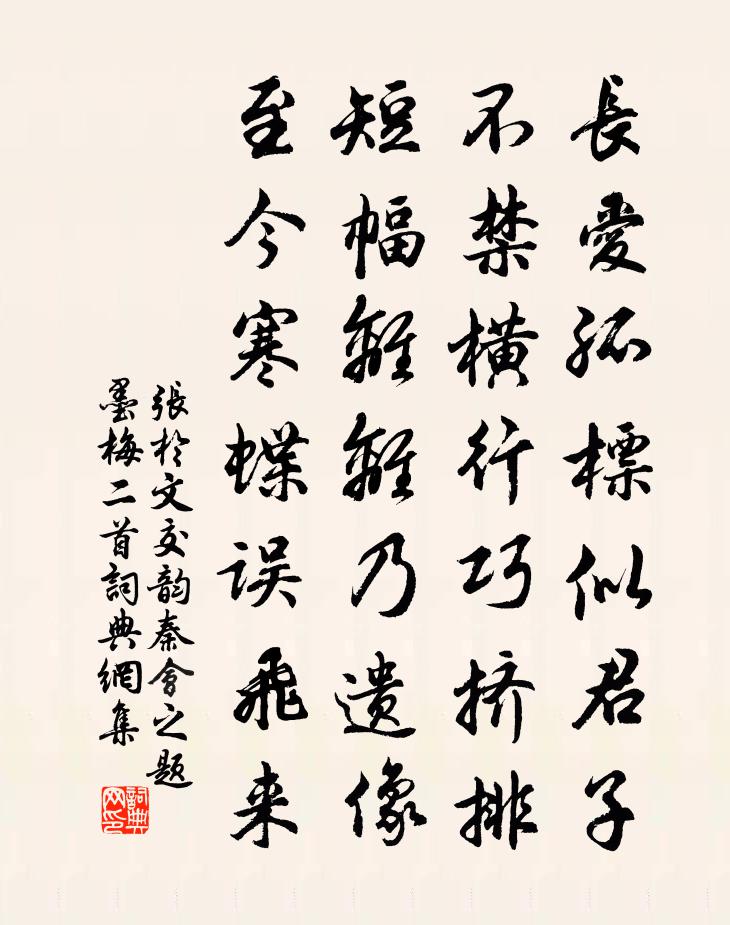 長愛孤標似君子
不禁橫行巧挤排
短幅離離乃遺像
至今寒蝶误飛来
張於文交韵秦會之题
墨梅二首詞典網集
詞典网印